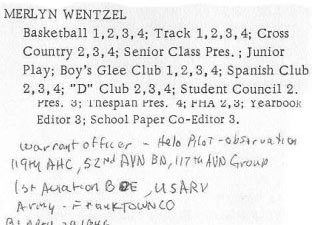 MERLYN WENTZEL
Basketball 1,2,3,4; Track 1,2,3,4; Cross
Country 2,3,4; Senior Class Pres. ; Junior
Play; Boy's Glee Club 1,2,3,4; Spanish Club
2,3,4; "D" Club 2,3,4; Student Council 2.
Pres. 3; Thespian Pres. 4; FHA 2,3; Yearbook
Editor 3; School Paper Co-Editor 3.
Warrant officer - Helo Pilot - observation
119th AHC, 52nd AVN BN, 117th AVN Group
1st Aviation BDE, USARV
Army - Franktown CO